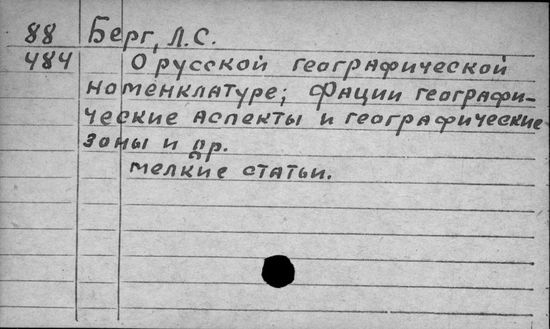 88 Берг, Л.С.
484 О русской географической
номенклатуре; Фации географи-
ческие аспекты и географические
зоны и др.
мелкие статьи.